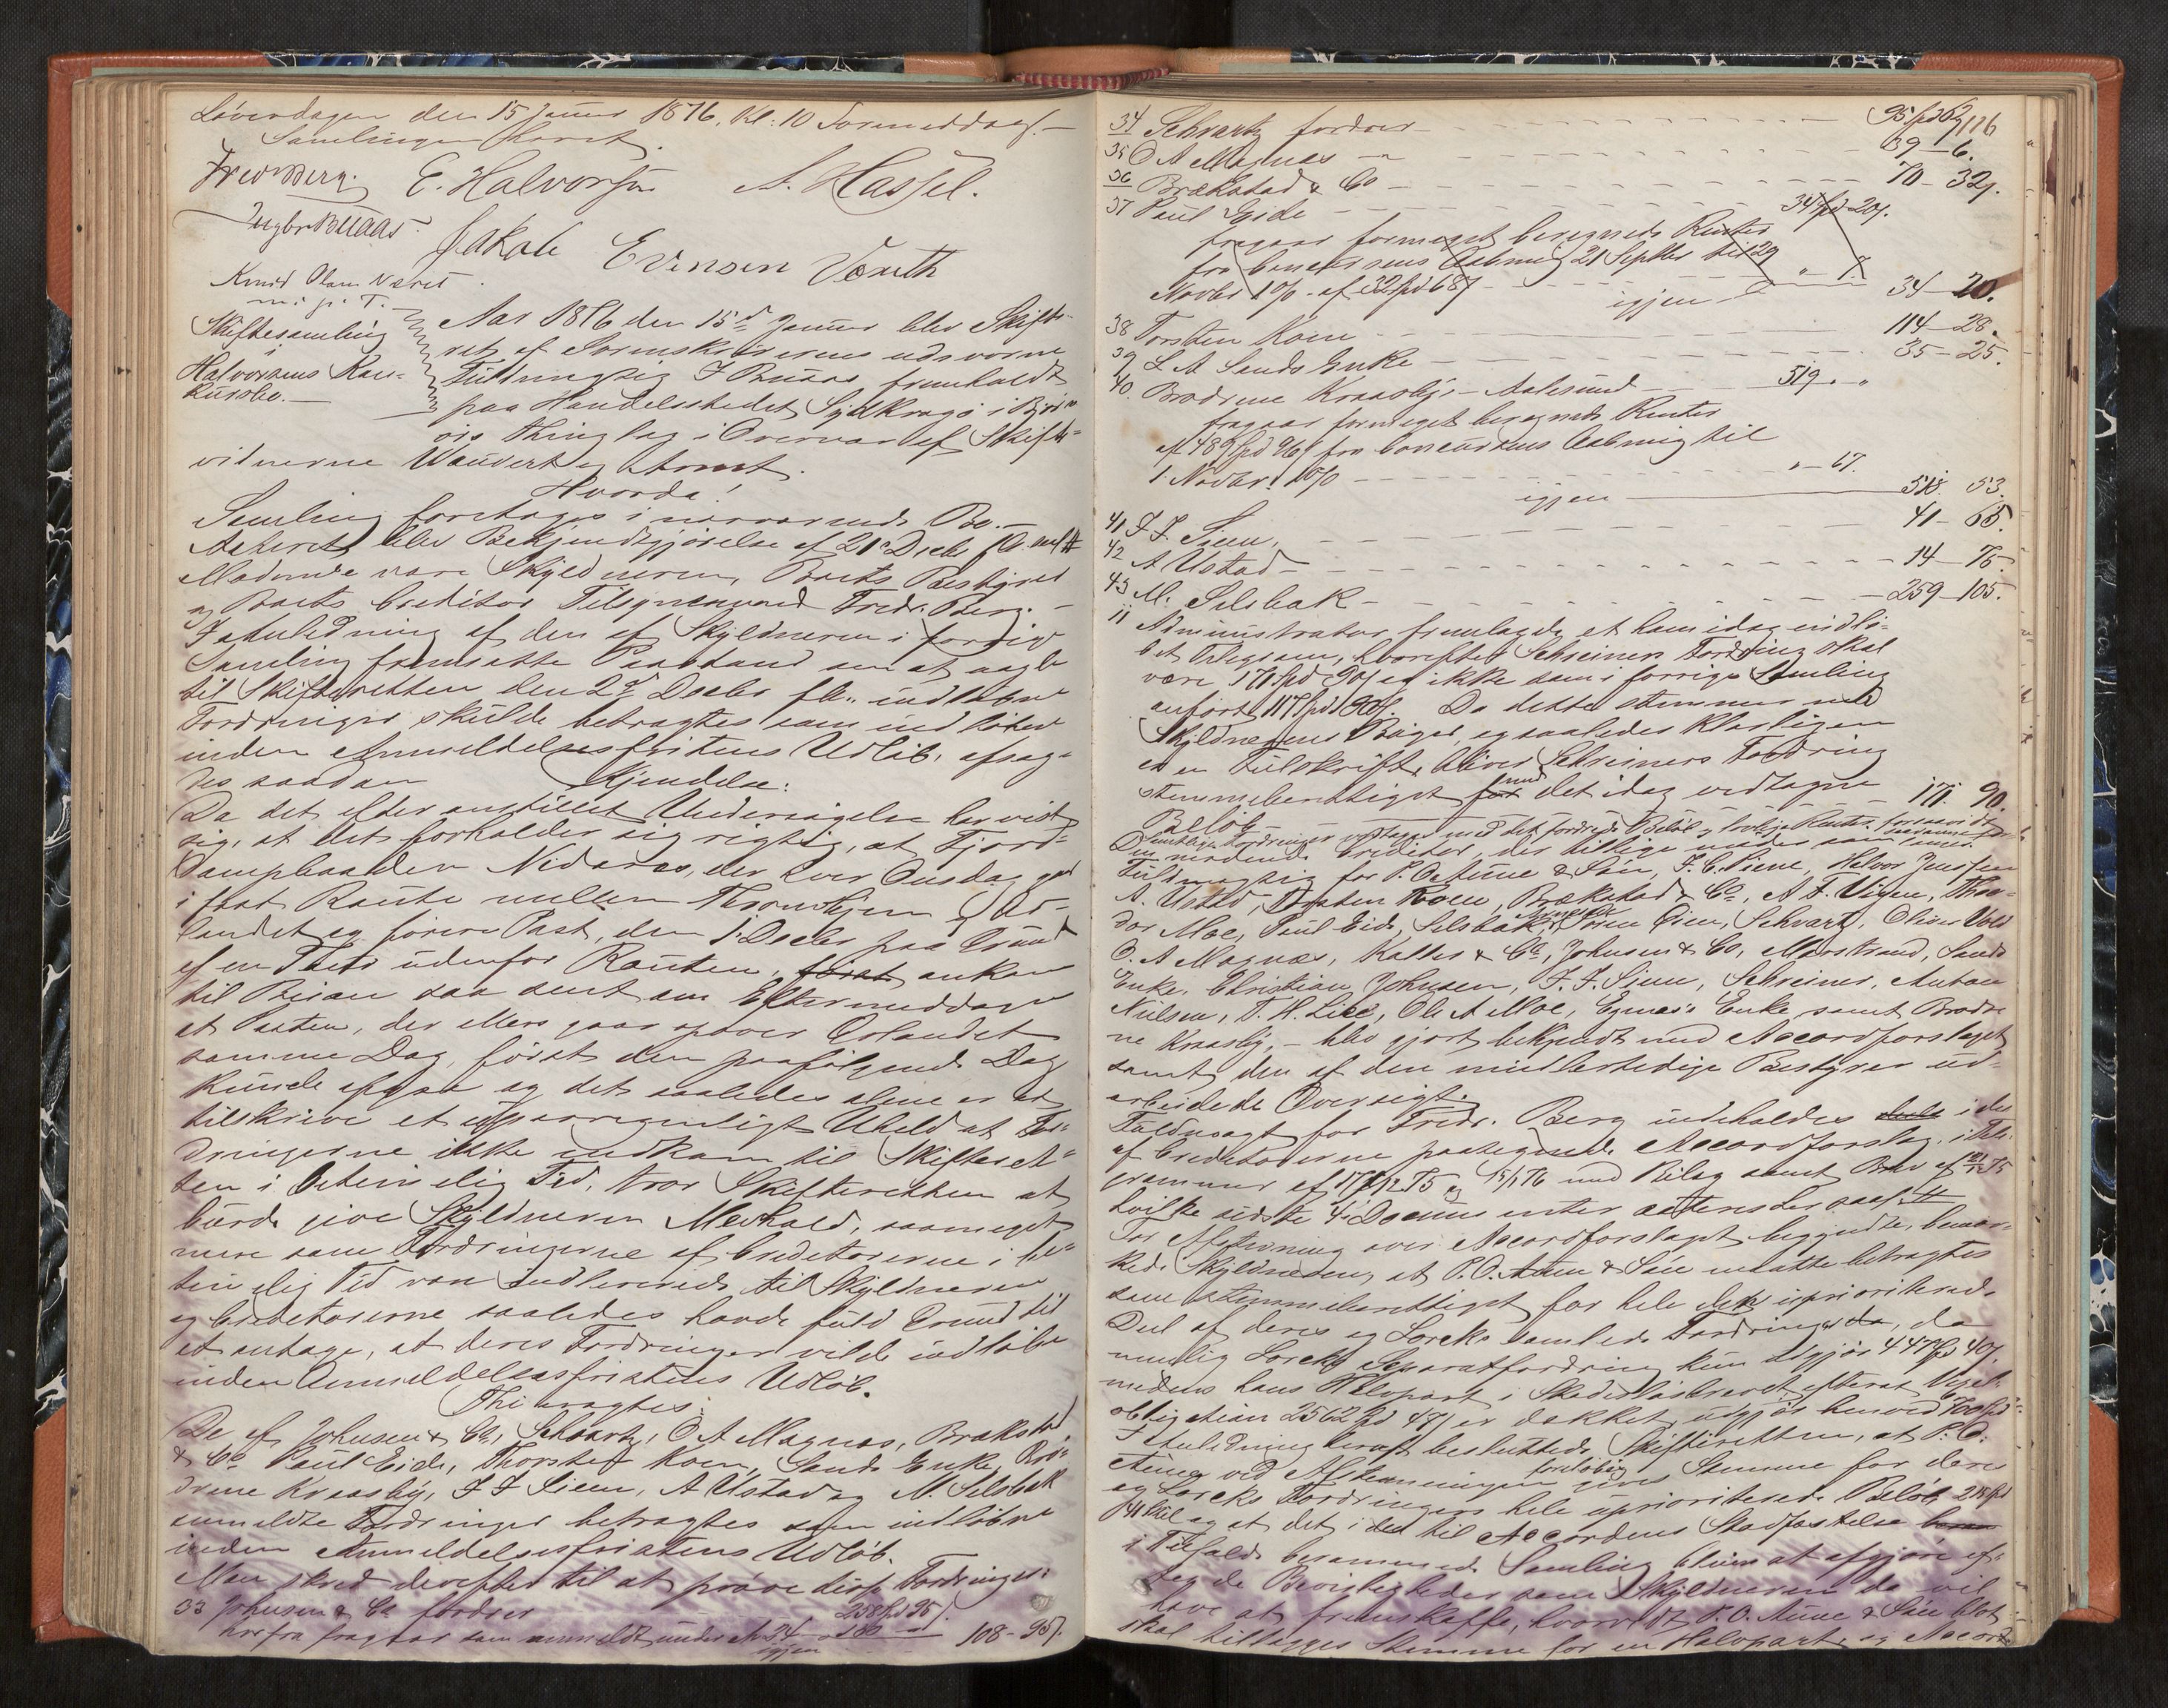 Löverdagen den 15 Januar 1876, Kl: 10 Formiddag. –
Samlingen hævet.
Fredr Berg. E. Halvorsen A. Hassel.
Jakob Evensen Værith
Knud Olsen Næret
m. p. P.
Skiftesamling
i
Halvorsens Kon-
kursbo. –
Aar 1876 den 15de Januar blev Skifte-
ret af Sorenskriverens edsvorne
Fuldmægtig I Buaas fremholdt
paa Handelsstedet i Björ
ørs Thinglag i Overvær af Skifte-
vidnerne og
Hvorda!
Samling foretages i nærværende Bo. –
Akteret blev Bekjendtgjörelse af 21de Decbr f. A.
Mødende vare Skyldneren, Boets Bestyrer
og Boets Creditor Tilsynsmand Fredr. Berg. –
I Anledning af den af Skyldneren i forrige
Samling fremsatte Paastand om at
til Skifteretten den 2de Decbr f. A. indløbne
Fordringer skulde betragtes som indløbne
inden Anmeldelsesfristens Udløb, afsag-
des saadan Kjendelse:
Da det efter anstillet Undersøgelse har vist
sig, at det forholder sig rigtig, at Fjord-
Dampbaaden Nidaros, der hver Onsdag gaar
i fast Route mellem Throndhjem og Ør-
landet og fører Post, den 1 Decbr paa Grund
af en Tour udenfor Routen, først ankom
til Beian saa sent om Eftermiddagen
at Posten, der ellers gaar opover Ørlandet
samme Dag, først den paafølgende Dag
kunde afgaa og det saaledes alene er at
tilskrive et Uheld at For-
dringerne ikke indkom til Skifteret-
ten i betimelig Tid, tror Skifteretten at
burde give Skyldneren Medhold, saameget
mere som Fordringerne af Creditorerne i be-
timelig Tid vare indleverede til Skyldneren
og Creditorerne saaledes havde fuld Grund til
at antage, at deres Fordringer vilde indløbe
inden Anmeldelsesfristens Udløb.
Thi eragtes:
De af Johnsen & Co, Schvartz, O A Magnæs, Brækstad
& Co Paul Eide, Thorsten Koen, Sands Enke, Brö-
drene Kraasby, J J Siem, A Ustad og M. Selsbak
anmeldte Fordringer betragtes som indløbne
inden Anmeldelsesfristens Udløb.
Man skred derefter til at prøve disse Fordringer:
33 Johnsen & Co fordrer 258 Spd 95
herfra fragaar som anmeldt under No 24 150 –
igjen 108 – 95.
34 Schvartz fordrer 95 Spd 62 116
35 O A Magnæs – 39 – 6.
36 Brækstad & Co – 70 – 32.
37 Paul Eide – 34 Spd 20.
fragaar formeget beregnede Renter
fra Concursens Aabning 21 Septbr til 29
Novbr 1 0/0 af 32 Spd 68 " – 8.
igjen 34 – 20.
38 Torsten Koen – 114 – 28.
39 L A Sands Enke – 35 – 25.
40. Brødrene Kraasby – Aalesund – 519 " "
fragaar formeget beregnede Renter
af 489 Spd 96 fra Concursens Aabning til
1 Novbr. " – 67.
igjen 518. 53.
41 J. J. Siem, – 41 – 65.
42 A Ustad – 14 – 75.
43 M. Selsbak – 259 – 105.
Administrator fremlagde et ham idag indlö-
bet Telegram, hvorefter Schreiners Fordring skal
være 171 Spd 90 og ikke som i forrige Samling
anført 117 Spd 90. Da dette stemmer med
Skyldnerens Bøger, og saaledes klarligen
er en Feilskrift, bliver Schreiners Fordring
stemmeberettiget med det idag vedtagne
Beløb – 171. 90.
mødende Creditor, der tillige møder som
Fuldmægtig for P. O Aune & Søn, J. C. Piene, Halvor Jenssen
A. Ustad, Torsten Koen, Brækstad & Co, A F. Vigen, Thor-
dor Moe, Paul Eide, Selsbak, Søren Oien, Schvartz, Oliver Vold
O. A Magnæs, Kattes & Co, Johnsen & Co, Marstrand, Sands
Enke, Christian Johnsen, J. J. Siem, Schreiner, Anton
Nielsen, T. H. Lie, Ole A Moe, Enke samt Brødre
ne Kraasby, – blev gjort bekjendt med Accordforslaget
samt den af den midlertidige Bestyrer ud-
arbeidede Oversigt.
Fuldmagt for Fredr. Berg indeholdes i det
af Creditorerne paategnede Accordforslag, i Tele-
grammer af 17/12 75 og 15/1 76 med Bilag samt Brev af
hvilke sidste 4 Documenter akteredes saal.
Før Afstemning over Accordforslaget begyndte, bemær-
kede Skyldneren, at P. O. Aune & Søn maatte betragtes
som stemmeberettiget for hele den uprioriterede
Deel af deres og Lorcks samlede Fordringer, da
nemlig Lorcks Separatfordring kun udgjør 447 Spd 40
medens hans Halvpart i Skadesløsbrevet
obligation 2562 Spd 48 er dækket, udgjør
I Anledning heraf besluttede Skifteretten, at P. O.
Aune ved Afstemningen foreløbig gives Stemme for deres
og Lorcks Fordringers hele uprioriterede Beløb
og at det i den til Accordens Stadfæstelse
i Tilfælde berammede Samling bliver at afgjøre ef-
ter de Bevisligheder som Skyldneren da vil
have at fremskaffe, hvorvidt P. O. Aune & Søn blot
skal tillægges Stemme for en Halvpart, og Accord